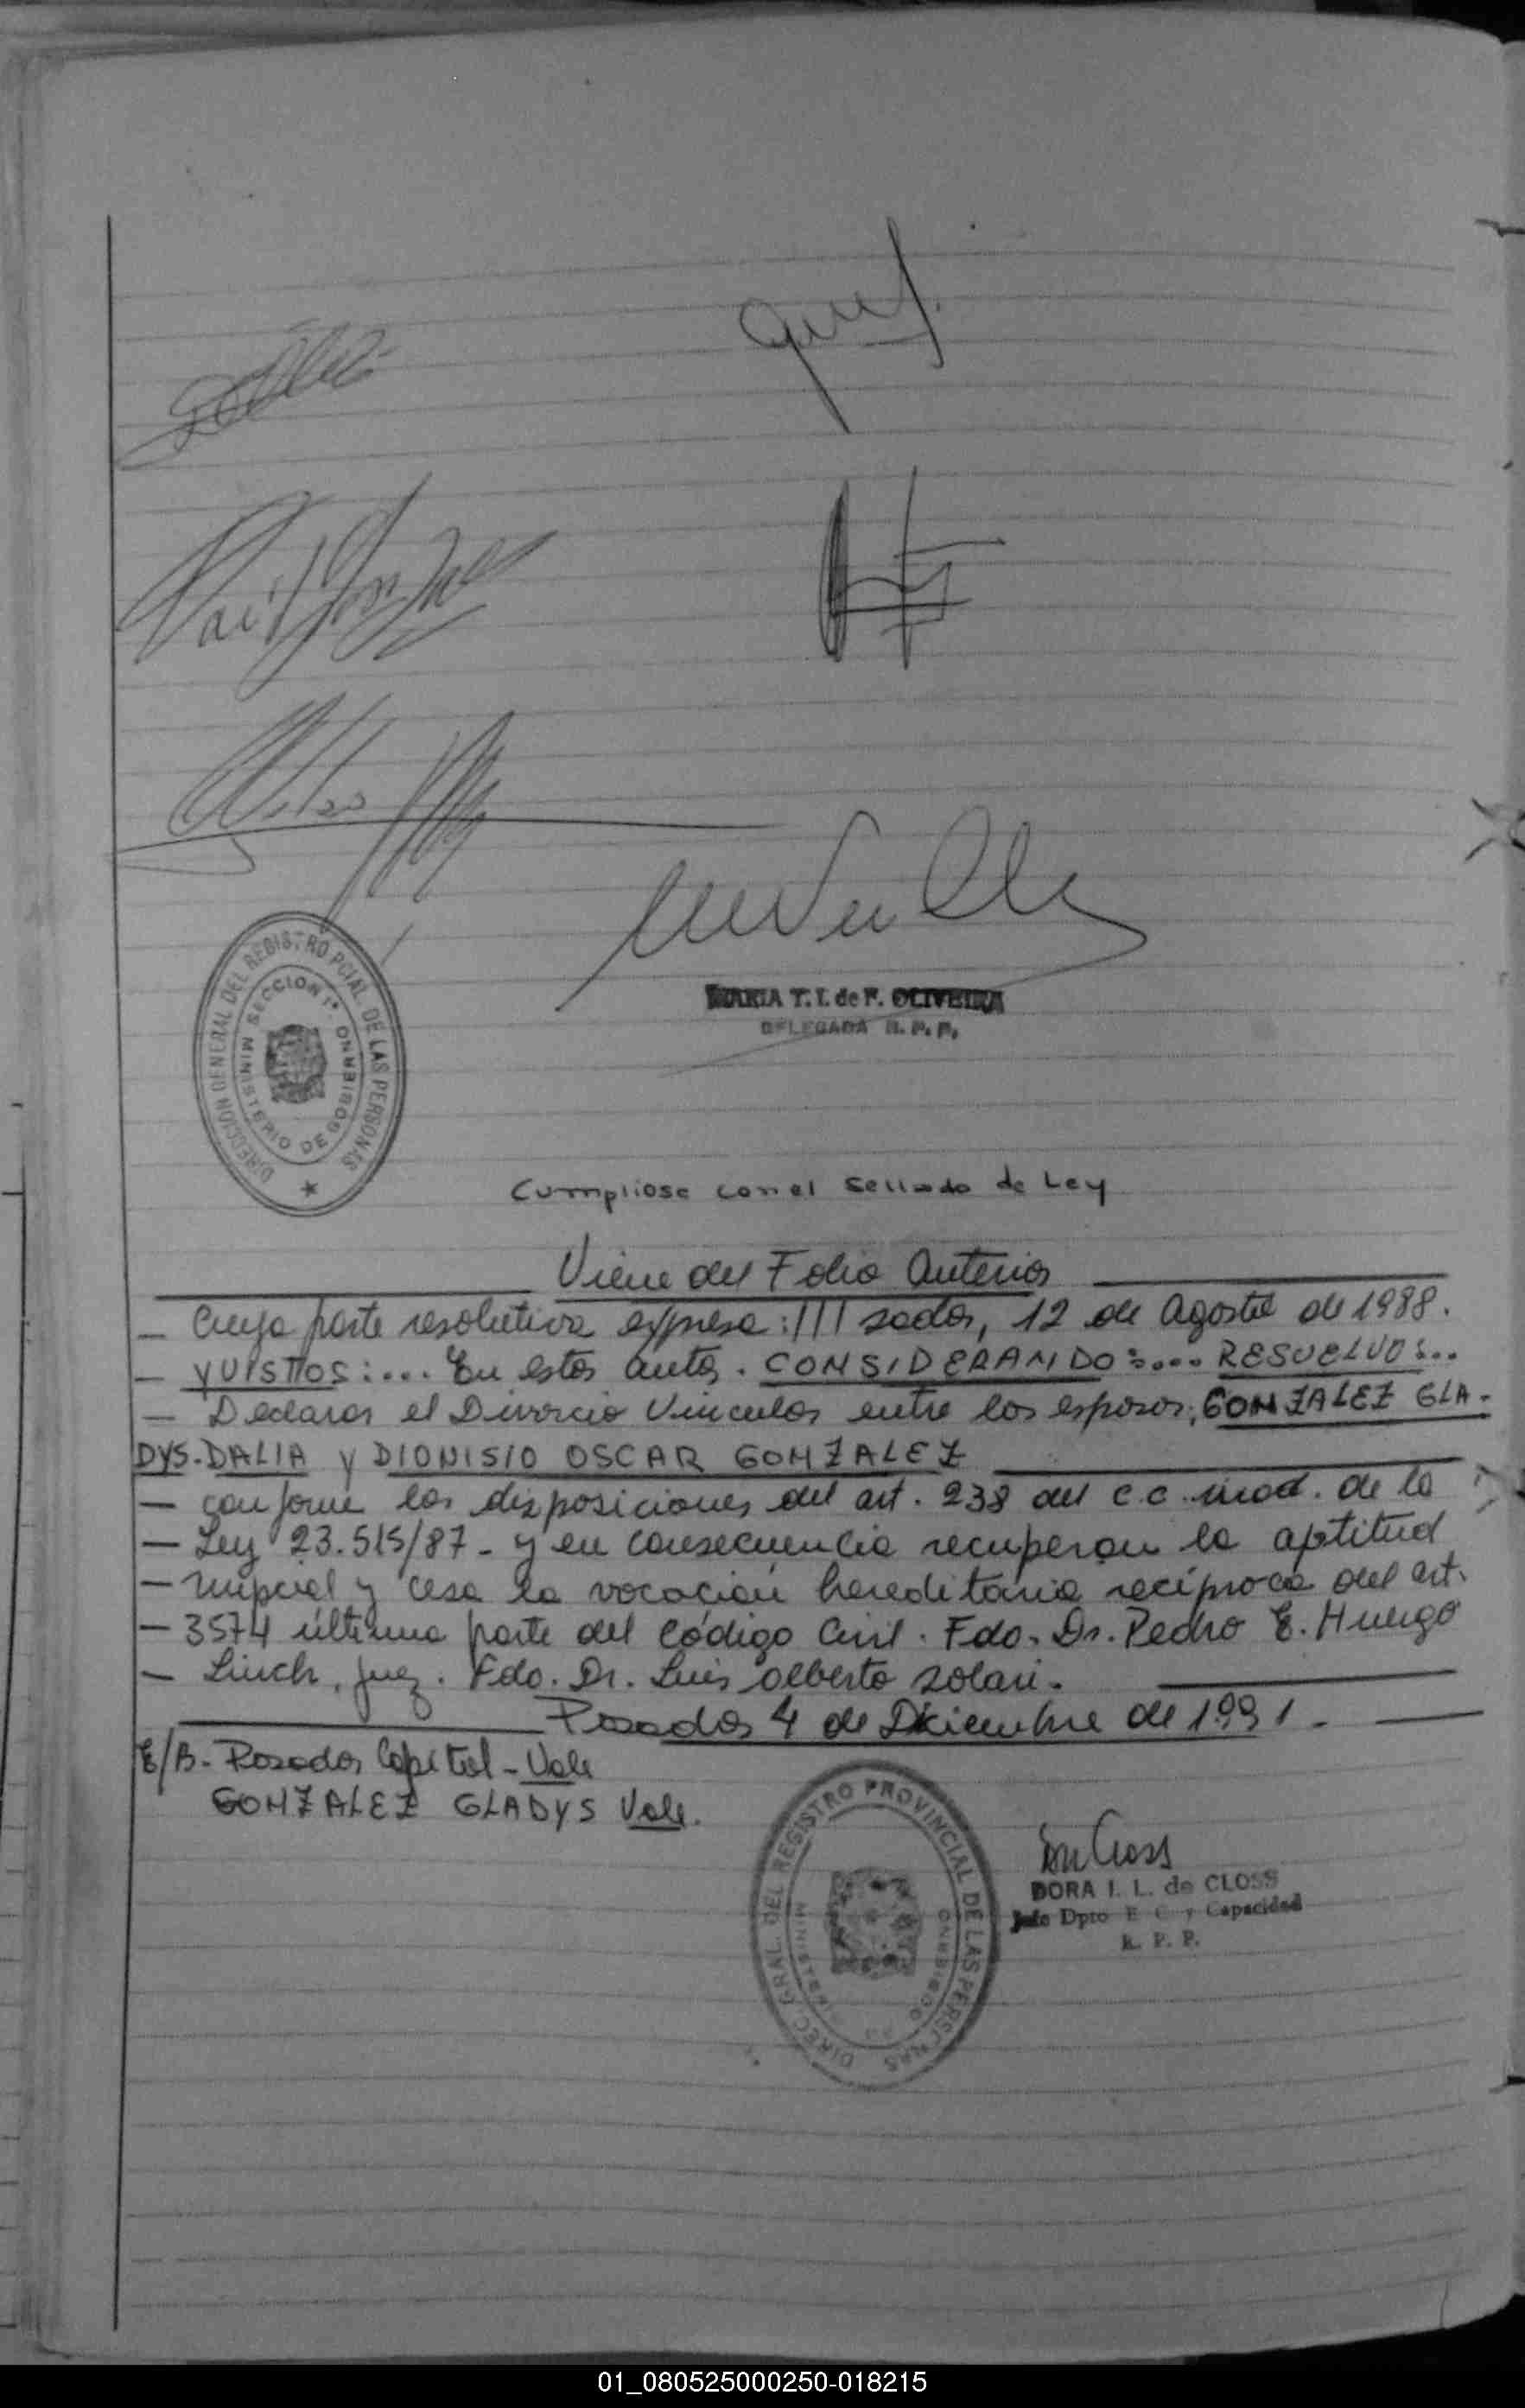 DIRECCION GENERAL DEL REGISTRO PCIAL. DE LAS PERSONAS
SECCION 1ª MINISTERIO DE GOBIERNO
MARIA T. I. de F. OLIVEIRA
DELEGADA R. P. P.
Cumpliose con el sellado de Ley
Viene del Folio Anterior
— Cuya parte resolutiva expresa: /// sadas, 12 de Agosto de 1988.
— Y VISTOS:... En estos autos. CONSIDERANDO:.... RESUELVO:...
— Declarar el Divorcio Vincular entre los esposos; GONZALEZ GLA-
DYS-DALIA y DIONISIO OSCAR GONZALEZ
— conforme las disposiciones del art. 238 del C.C. mod. de la
— Ley 23.515/87 - y en consecuencia recuperan la aptitud
— nupcial y cesa la vocación hereditaria recíproca del art.
— 3574 última parte del Código Civil. Fdo. Dr. Pedro E. Huergo
— Linch, Juez. Fdo. Dr. Luis Alberto Solari.
Posadas 4 de Diciembre de 1991.
E/B- Posadas Capital - Vale
GONZALEZ GLADYS Vale.
DIREC. GRAL. DEL REGISTRO PROVINCIAL DE LAS PERSONAS
MINISTERIO DE GOBIERNO
DORA I. L. de CLOSS
Jefe Dpto E. C. y Capacidad
R. P. P.
01_080525000250-018215